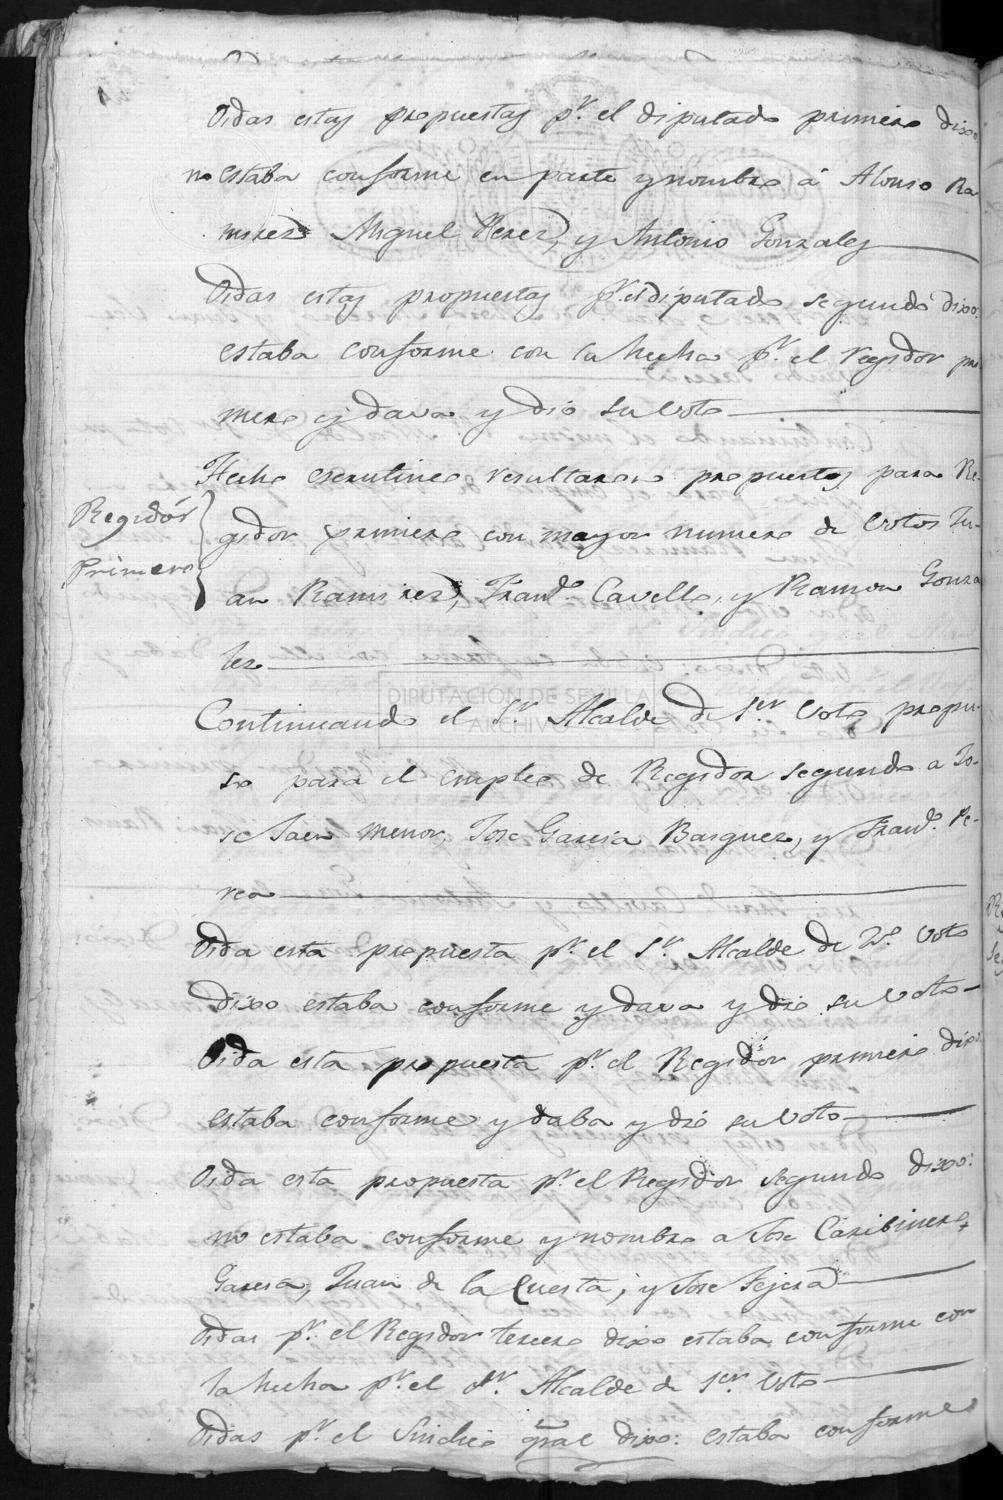 Oidas estas propuestas pr. el diputado primero dixo
no estaba conforme en parte y nombro á Alonso Ra-
mirez Miguel Perez, y Antonio Gonzalez
Oidas estas propuestas pr. el diputado segundo dixo:
estaba conforme con la hecha pr. el regidor pri
mero y dava y dio su voto
Hecho escrutineo resultaron propuestos para Re-
Regidór
Primero
gidor primero con mayor numero de votos Ju-
an Ramirez, Frando. Cavello, y Ramon Gonza
lez
Continuando el Sr. Alcalde de 1er voto propu-
so para el empleo de Regidor segundo a Jo-
se Jaen menor, Jose Garcia Basquez, y Frando. Pe-
rea
DIPUTACIÓN DE SEVILLA
ARCHIVO
Oida esta propuesta pr. el Sr. Alcalde de 2do. voto
dixo estaba conforme y dava y dio su voto
Oida esta propuesta pr. el Regidor primero dixo:
estaba conforme y daba y dió su voto
Oida esta propuesta pr. el Regidor segundo dixo:
no estaba conforme y nombro a Jose Caribinero
Garcia, Juan de la Cuesta, y Jose Tejera
Oidas pr. el Regidor tercero dixo estaba conforme con
la hecha pr. el Sr. Alcalde de 1er. voto
Oidas pr. el Sindico gral dixo: estaba conforme